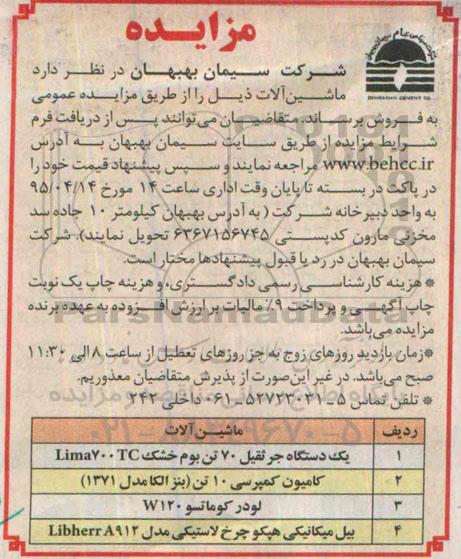 مزایده
BEHBAHAN CEMENT CO.
شرکت سیمان بهبهان در نظر دارد
ماشین‌آلات ذیل را از طریق مزایده عمومی
به فروش برساند. متقاضیان می‌توانند پس از دریافت فرم
شرایط مزایده از طریق سایت سیمان بهبهان به آدرس
www.behcc.ir مراجعه نمایند و سپس پیشنهاد قیمت خود را
در پاکت در بسته تا پایان وقت اداری ساعت ۱۴ مورخ ۹۵/۰۴/۱۴
به واحد دبیرخانه شرکت ( به آدرس بهبهان کیلومتر ۱۰ جاده سد
مخزنی مارون کدپستی ۶۳۶۷۱۵۶۷۴۵ تحویل نمایند). شرکت
سیمان بهبهان در رد یا قبول پیشنهادها مختار است.
*هزینه کارشناسی رسمی دادگستری، و هزینه چاپ یک نوبت
چاپ آگهی و پرداخت ۹٪ مالیات بر ارزش افزوده به عهده برنده
مزایده می‌باشد.
*زمان بازدید روزهای زوج به جز روزهای تعطیل از ساعت ۸ الی ۱۱:۳۰
صبح می‌باشد. در غیر این‌صورت از پذیرش متقاضیان معذوریم.
* تلفن تماس ۵ ــ ۵۲۷۲۳۰۳۱ ــ ۰۶۱ داخلی ۲۴۲
ردیف ماشین آلات
۱ یک دستگاه جرثقیل ۷۰ تن بوم خشک Lima۷۰۰TC
۲ کامیون کمپرسی ۱۰ تن (بنز الکا مدل ۱۳۷۱)
۳ لودر کوماتسو W۱۲۰
۴ بیل میکانیکی هپکو چرخ لاستیکی مدل Libherr A۹۱۲